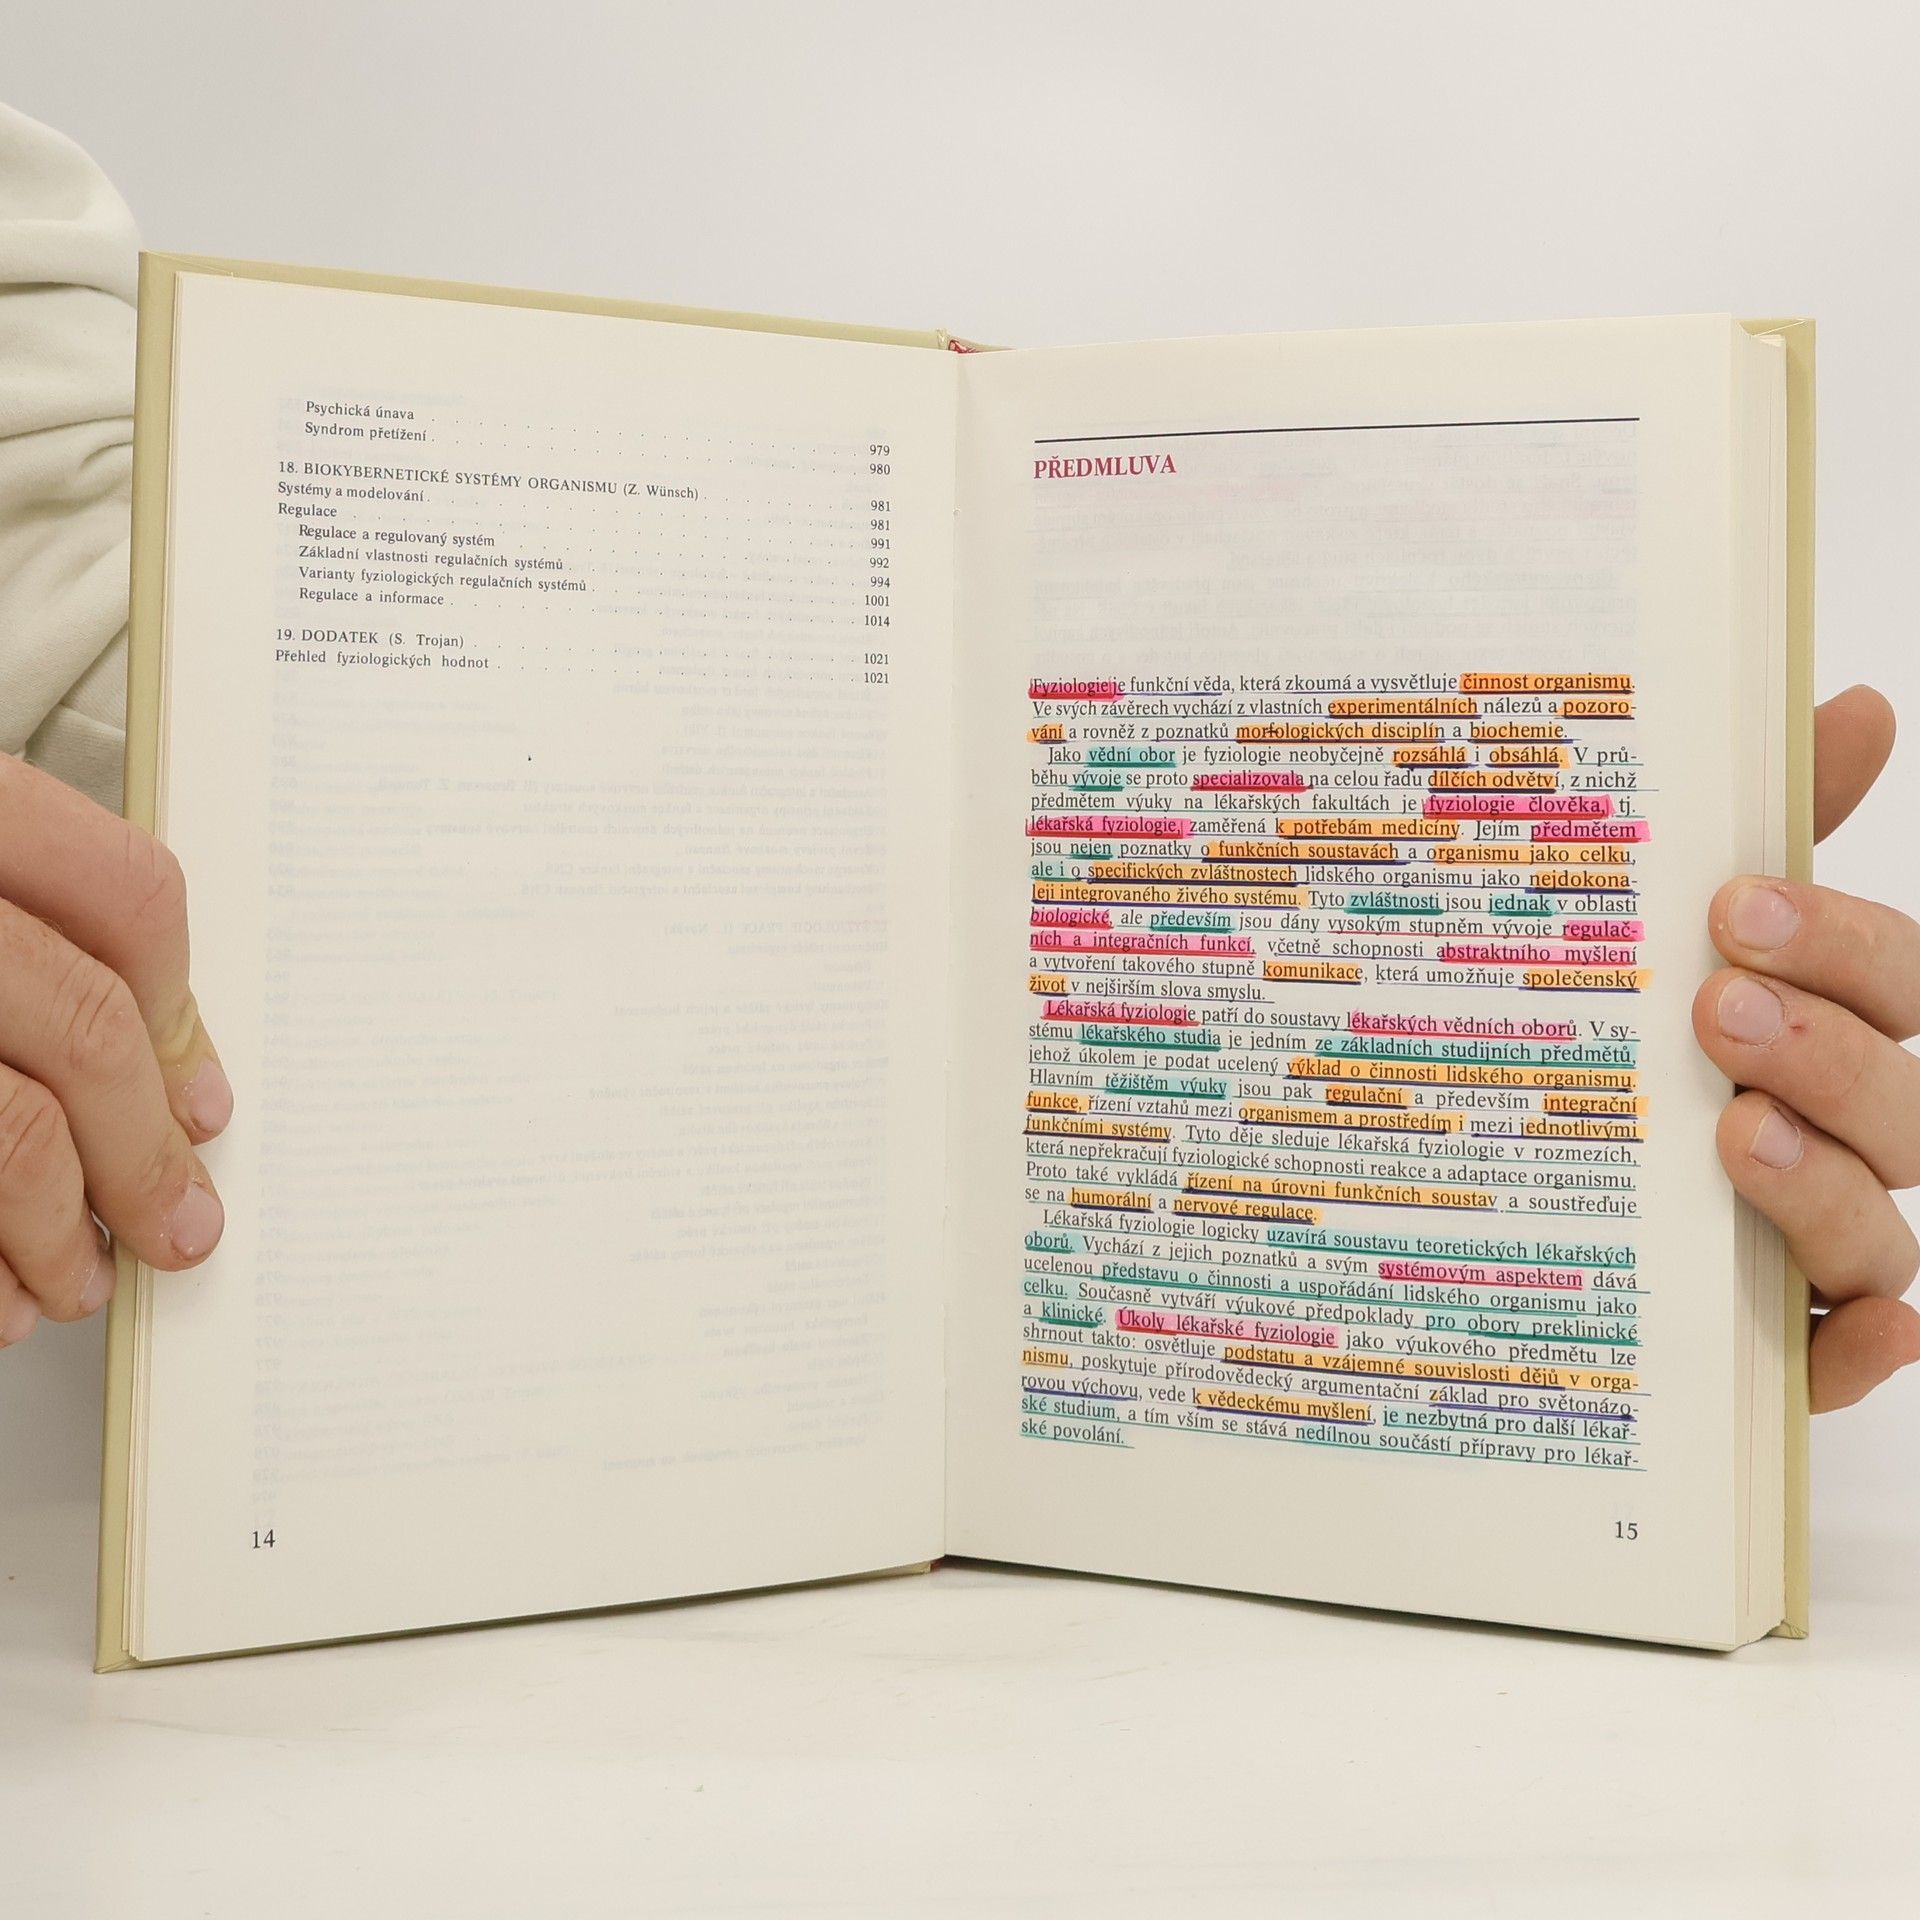 Psychická únava . . . . . . . . . . . . . . . 979
Syndrom přetížení . . . . . . . . . . . . . . . 980
18. BIOKYBERNETICKÉ SYSTÉMY ORGANISMU (Z. Wünsch) . . . . . . 981
Systémy a modelování . . . . . . . . . . . . . . . 981
Regulace . . . . . . . . . . . . . . . 991
Regulace a regulovaný systém . . . . . . . . . . . . 992
Základní vlastnosti regulačních systémů . . . . . . . . . . 994
Varianty fyziologických regulačních systémů . . . . . . . . . 1001
Regulace a informace . . . . . . . . . . . . . 1014
19. DODATEK (S. Trojan) . . . . . . . . . . . . . 1021
Přehled fyziologických hodnot . . . . . . . . . . . . 1021
14
PŘEDMLUVA
Fyziologie je funkční věda, která zkoumá a vysvětluje činnost organismu.
Ve svých závěrech vychází z vlastních experimentálních nálezů a pozoro-
vání a rovněž z poznatků morfologických disciplín a biochemie.
Jako vědní obor je fyziologie neobyčejně rozsáhlá i obsáhlá. V prů-
běhu vývoje se proto specializovala na celou řadu dílčích odvětví, z nichž
předmětem výuky na lékařských fakultách je fyziologie člověka, tj.
lékařská fyziologie, zaměřená k potřebám medicíny. Jejím předmětem
jsou nejen poznatky o funkčních soustavách a organismu jako celku,
ale i o specifických zvláštnostech lidského organismu jako nejdokona-
leji integrovaného živého systému. Tyto zvláštnosti jsou jednak v oblasti
biologické, ale především jsou dány vysokým stupněm vývoje regulač-
ních a integračních funkcí, včetně schopnosti abstraktního myšlení
a vytvoření takového stupně komunikace, která umožňuje společenský
život v nejširším slova smyslu.
Lékařská fyziologie patří do soustavy lékařských vědních oborů. V sy-
stému lékařského studia je jedním ze základních studijních předmětů,
jehož úkolem je podat ucelený výklad o činnosti lidského organismu.
Hlavním těžištěm výuky jsou pak regulační a především integrační
funkce, řízení vztahů mezi organismem a prostředím i mezi jednotlivými
funkčními systémy. Tyto děje sleduje lékařská fyziologie v rozmezích,
která nepřekračují fyziologické schopnosti reakce a adaptace organismu.
Proto také vykládá řízení na úrovni funkčních soustav a soustřeďuje
se na humorální a nervové regulace.
Lékařská fyziologie logicky uzavírá soustavu teoretických lékařských
oborů. Vychází z jejich poznatků a svým systémovým aspektem dává
ucelenou představu o činnosti a uspořádání lidského organismu jako
celku. Současně vytváří výukové předpoklady pro obory preklinické
a klinické. Úkoly lékařské fyziologie jako výukového předmětu lze
shrnout takto: osvětluje podstatu a vzájemné souvislosti dějů v orga-
nismu, poskytuje přírodovědecký argumentační základ pro světonázo-
rovou výchovu, vede k vědeckému myšlení, je nezbytná pro další lékař-
ské studium, a tím vším se stává nedílnou součástí přípravy pro lékař-
ské povolání.
15